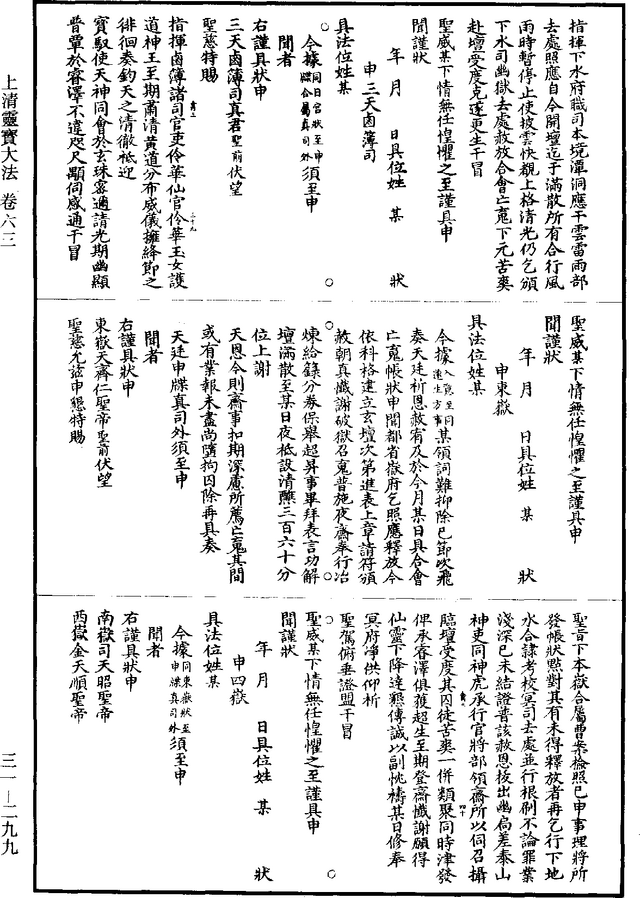 上清靈寶大法 卷六三
三一—二九九
指揮下水府職司本境潭洞應干雲雷雨部
去處照應自今開壇迄于滿散所有合行風
雨時暫停止使披雲快覩上格清光仍乞頒
下水司幽獄去處赦放合會亡魂下元苦爽
赴壇受度克遂更生干冒
聖威某下情無任惶懼之至謹具申
聞謹狀
年 月 日具位姓 某 狀
申三天鹵簿司
具法位姓某
今據同日宮狀至申牒合屬真司外須至申
聞者
右謹具狀申
三天鹵簿司真君聖前伏望
聖慈特賜
指揮鹵簿諸司官吏伶華仙官伶華玉女護
道神王至期肅清黃道分布威儀擁絳節之
徘徊奏鈞天之清徹祗迎
寶馭使天神同會於玄珠密邇請光期幽顯
普覃於睿澤不違咫尺顒伺感通干冒
聖威某下情無任惶懼之至謹具申
聞謹狀
年 月 日具位姓 某 狀
申東嶽
具法位姓某
今據入意至同進生方事某領詞難抑除已節次飛
奏天廷祈恩赦宥及於今月某日具合會
亡魂帳狀申聞都省嶽府乞照應釋放今
依科格建立玄壇次第進表上章請符頒
赦朝真懺謝破獄召魂普施夜齋奉行冶
煉給籙分券保舉超昇事畢拜表言功解
壇滿散至某日夜祗設清醮三百六十分
位上謝
天恩令則齋事扣期深慮所薦亡魂其間
或有業報未盡尚墮拘囚除再具奏
天廷申牒真司外須至申
聞者
右謹具狀申
東嶽天齊仁聖帝聖前伏望
聖慈允茲申懇特賜
聖旨下本嶽合屬曹案檢照已申事理將所
發帳狀點對其有未得釋放者再乞行下地
水合隸考校冥司去處並行根刷不論罪業
淺深已未結證普該赦恩拔出幽扃差泰山
神吏同神虎承行官將部領齋所以伺召攝
臨壇受度其囚徒苦爽一併類聚同時津發
俾承睿澤俱獲超生至期登齋懺謝願得
仙靈下降達懇傳誠以副忱禱某日修奉
冥府淨供仰祈
聖駕俯垂證盟干冒
聖威某下情無任惶懼之至謹具申
聞謹狀
年 月 日具位姓 某 狀
申四嶽
具法位姓某
今據同東嶽狀至申牒真司外須至申
聞者
右謹具狀申
南嶽司天昭聖帝
西嶽金天順聖帝